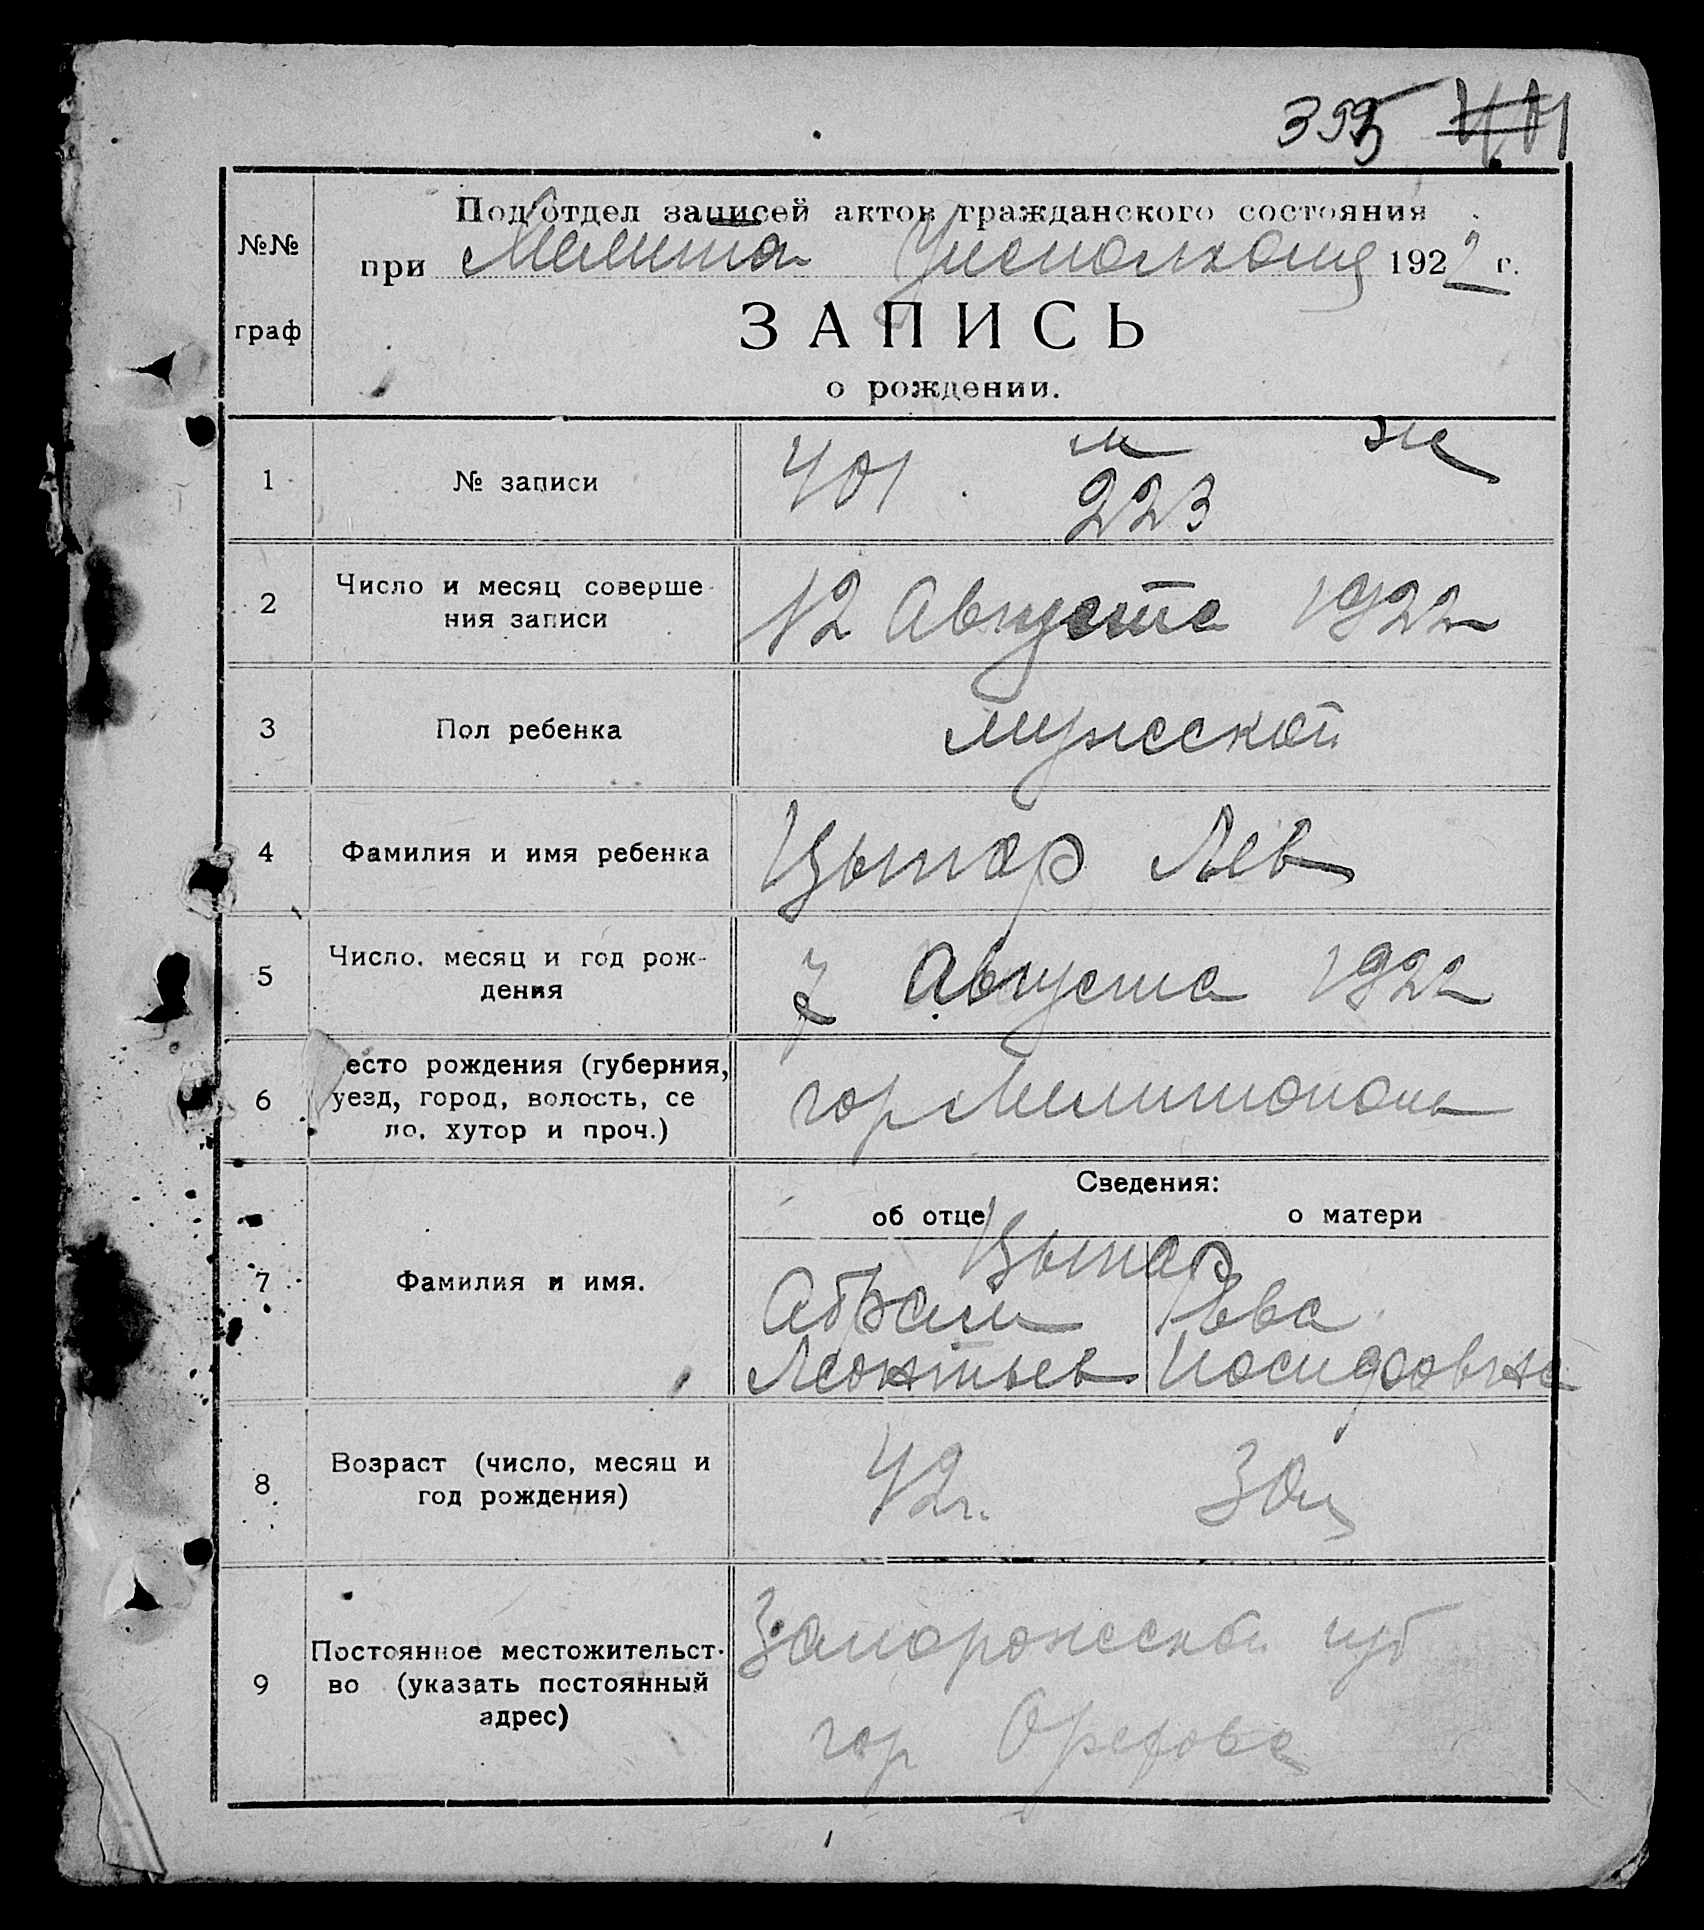 395 401
№№ граф
Подотдел записей актов гражданского состояния
при Мелито Уисполкоме 1922 г.
ЗАПИСЬ
о рождении.
1 № записи 401 м 223 ж
2 Число и месяц соверше-
ния записи 12 Августа 1922
3 Пол ребенка мужской
4 Фамилия и имя ребенка Цыпар Лев
5 Число, месяц и год рож-
дения 7 Августа 1922
есто рождения (губерния,
6 уезд, город, волость, се
ло, хутор и проч.) гор Мелитополь
Сведения:
об отце о матери
7 Фамилия и имя. Цыпар
Абрам Ева
Леонтьев Иосифовна
8 Возраст (число, месяц и
год рождения) 42 г. 30
9 Постоянное местожительст-
во (указать постоянный
адрес)
Запорожской губ
гор Орехове